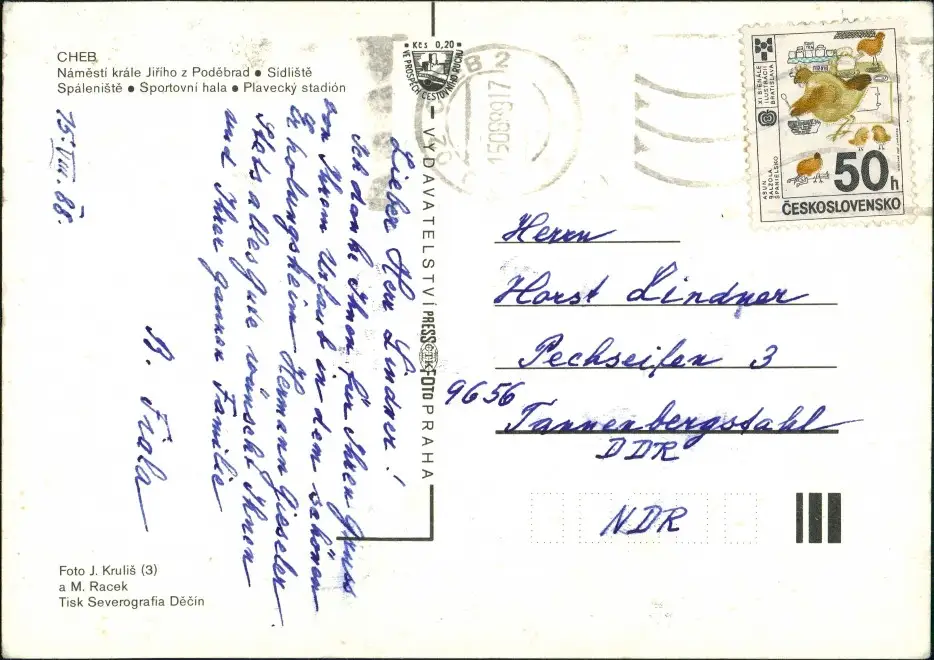 CHEB
Náměstí krále Jiřího z Poděbrad ● Sídliště
Spáleniště ● Sportovní hala ● Plavecký stadión
15. VIII. 88.
Lieber Herr Lindner!
Ich danke Ihnen für Ihren Gruss
von Ihrem Urlaub in dem schönen
Erholungsheim Hermann Gieseler.
Stets alles gute wünscht Ihnen
und Ihrer ganzen Familie
B. Fiala
Foto J. Kruliš (3)
a M. Racek
Tisk Severografia Děčín
Kčs 0,20
VE PROSPĚCH CESTOVNÍHO RUCHU
VYDAVATELSTVÍ PRESSFOTO PRAHA
ČTK
EB 2
XI. BIENÁLE
ILUSTRÁCIÍ
BRATISLAVA
ASUN
BALZOLA
ŠPANIELSKO
50 h
ČESKOSLOVENSKO
Herrn
Horst Lindner
Pechseifen 3
9656 Tannenbergsthal
DDR
NDR